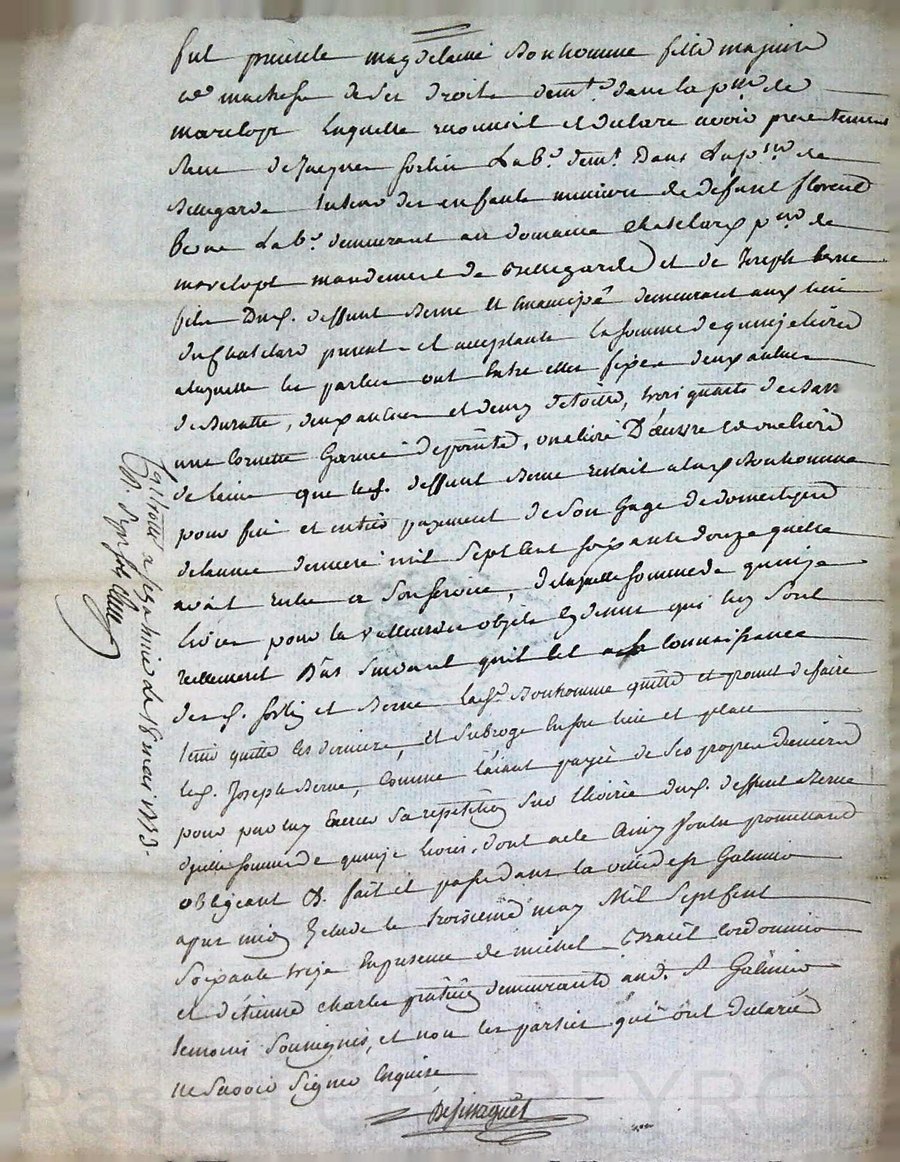 fut presente magdelaine Bonhomme fille majeure
et maitresse de ses droits demt. dans la psse de
marclopt laquelle reconnoit et declare avoir presentement
Receu de Jacques fortin Labr. demt. Dans la psse de
Bellegarde tuteur des enfants mineurs de défunt florend
Berne Labr. demeurant au domaine Chatelard psse de
marclopt mandement de Bellegarde et de Joseph berne
fils Dud. deffunt Berne Et Emancipé demeurant aux lieu
du Chatelard present et acceptants la somme de quinze livres
a laquelle les parties ont Entre elles fixées deux aulnes
de Buratte, deux aulnes et demy de toille, trois quarts de
une Cornette Garnie de pointe, une livre D'œuvre et une livre
de laine que led. deffunt Berne restait a lad. Bonhomme
pour fin et entier payement de son Gage de domestique
de l'année derniere mil Sept Cent Soixante douze quelle
avait entré a Son Service, de laquelle somme de quinze
livres pour la valleur des objets cy dessus qui luy Sont
réellement dus suivant qu'il est a la Connaissance
desd. fortin et Berne lad. Bonhomme quitte et promet de faire
tenir quitte les derniers, Et Subroge En son lieu et place
led. Joseph Berne, Comme l'aiant payée de Ses propres deniers
pour par luy Exercer Sa repetition Sur l'hoirie dud. deffunt Berne
d'icelle somme de quinze livres, dont acte Ainsy voulu promettant
obligeant &. fait et passé dans la ville de St Galmier
apres midy Etude le troisieme may Mil Sept Cent
Soixante treize En presence de michel Cordonnier
et d'étienne charles praticien demeurants aud. St Galmier
temoins Soussignés, et non les parties qui ont declaré
ne Savoir Signer Enquise
Controllé a St Galmier le 18 mai 1773.
Pascal CHAPEYRON